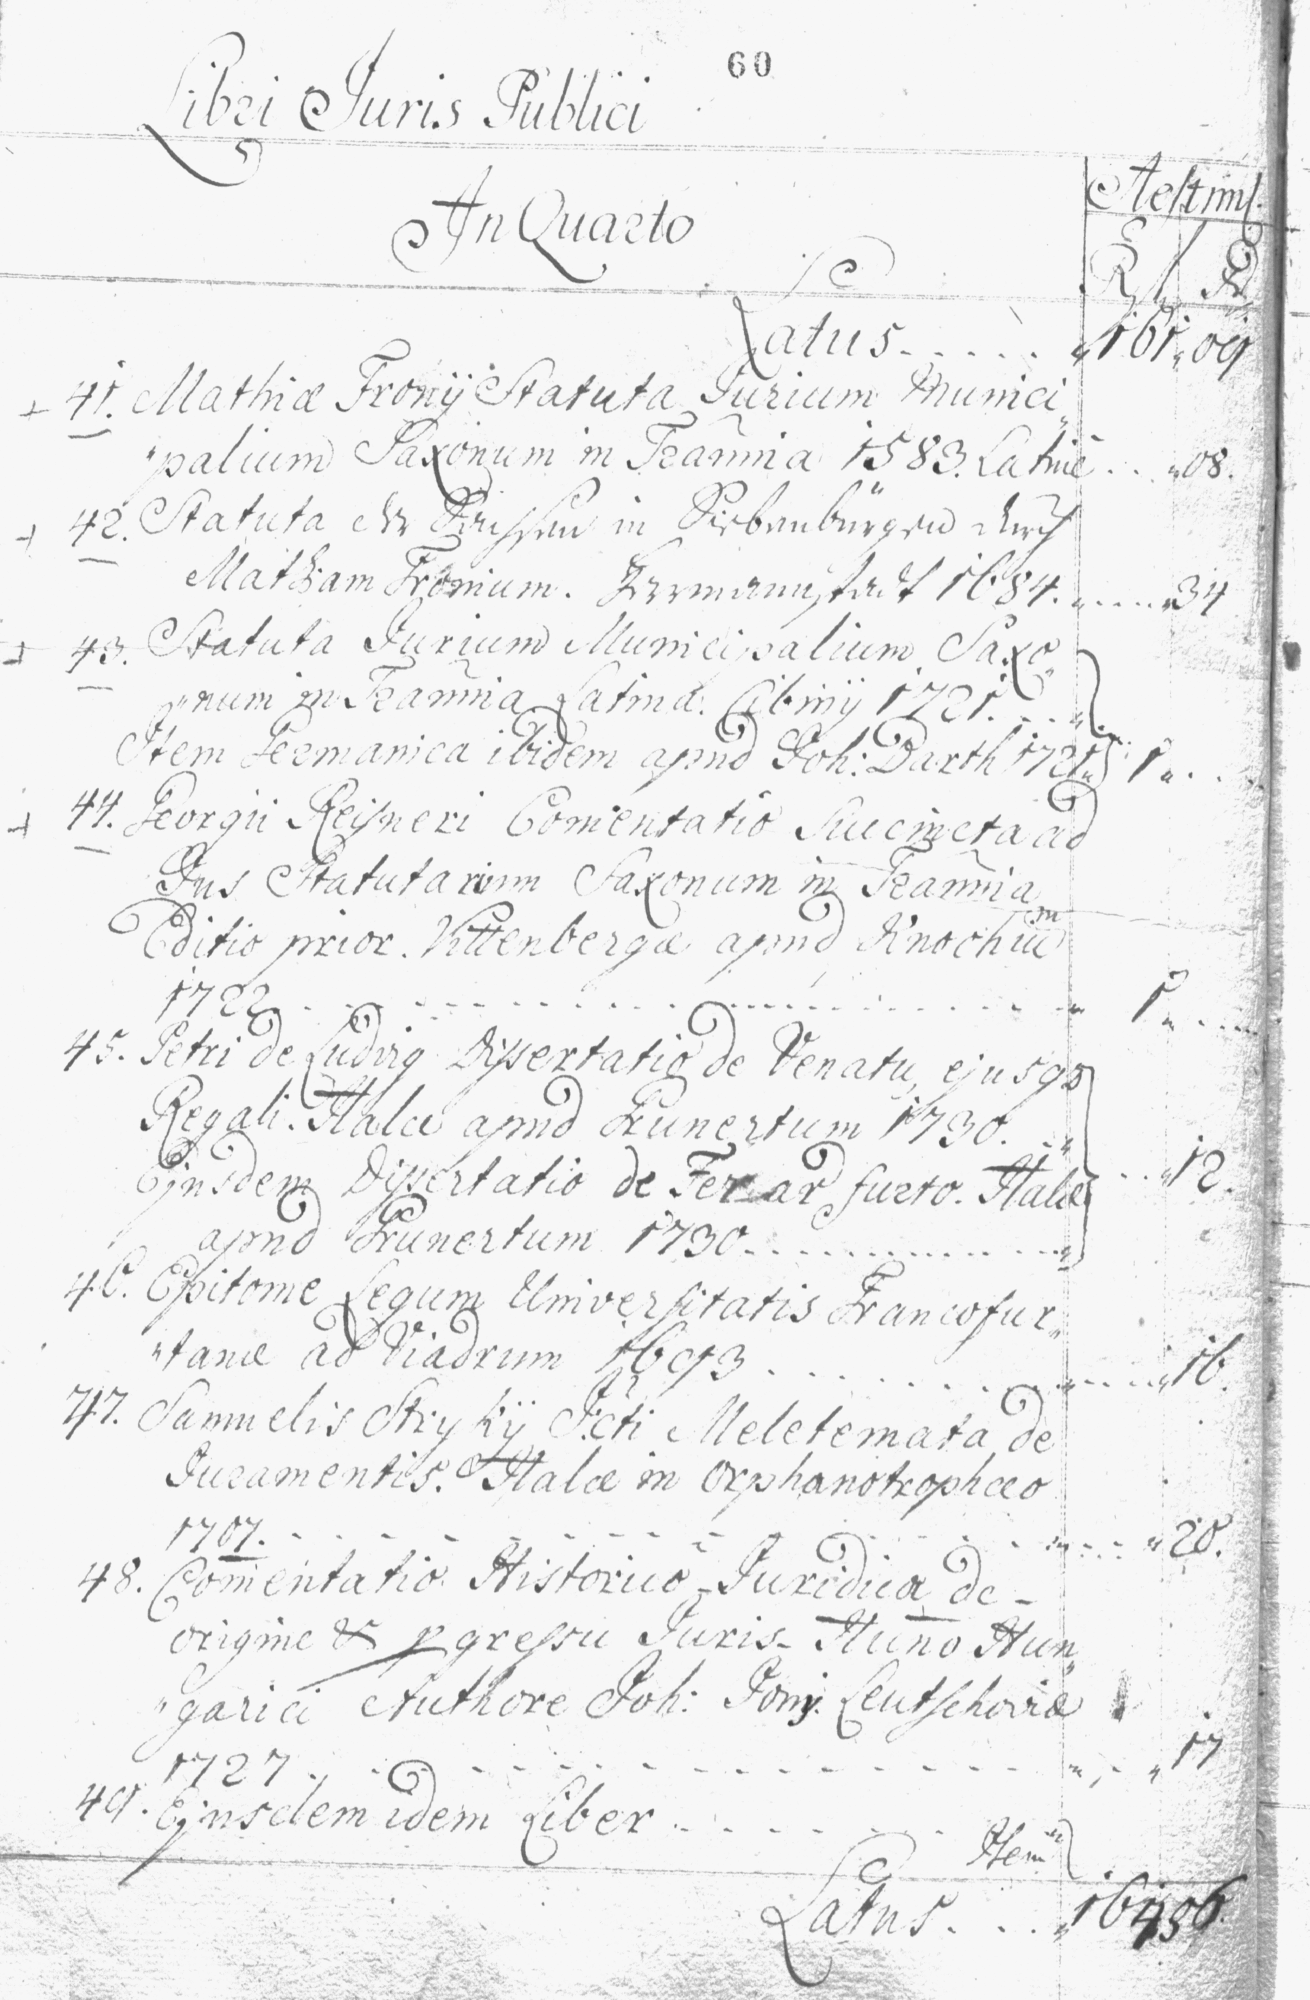 60
Libri Juris Publici
In Quarto
Aestim.
Rfl. Xr
Latus..... „161„09
41. Mathiæ Fronij Statuta Jurium Munici„
„palium Saxonum in Trannia 1583. Latinè... „08.
42. Statuta der Sachsen in Siebenbürgen durch
Mathiam Fronium. Hermannstadt 1684. „....„34
43. Statuta Jurium Municipalium Saxo„
„num in Trannia Latina. Cibinij 1721....„
Item Germanica ibidem apud Joh: Barth 1721„ 1„...
44. Georgii Reijneri Comentatio Succincta ad
Jus Statutarium Saxonum in Trannia
Editio prior. Vittenbergæ apud Knochium
1722................„ 1„....
45. Petri de Ludvig Dissertatio de Venatu, ejusq
Regali. Halæ apud Grunertum 1730. ..„
Ejusdem Dissertatio de Ferar furto. Halæ ...„12.
apud Grunertum 1730..............„
46. Epitome Legum Universitatis Francofur„
„tanæ ad Viadrum 1693........„....„16.
47. Samuelis Strykij Jcti Meletemata de
Juramentis. Halæ in Orphanotrophæo
1707................„...„20.
48. Comentatio Historico Juridica de
origine & pgressu Juris Huno Hun„
„garici Authore Joh: Jony. Leutschoviæ
1727...............„.„17
49. Ejusdem idem Liber.......
Latus....„164„56.